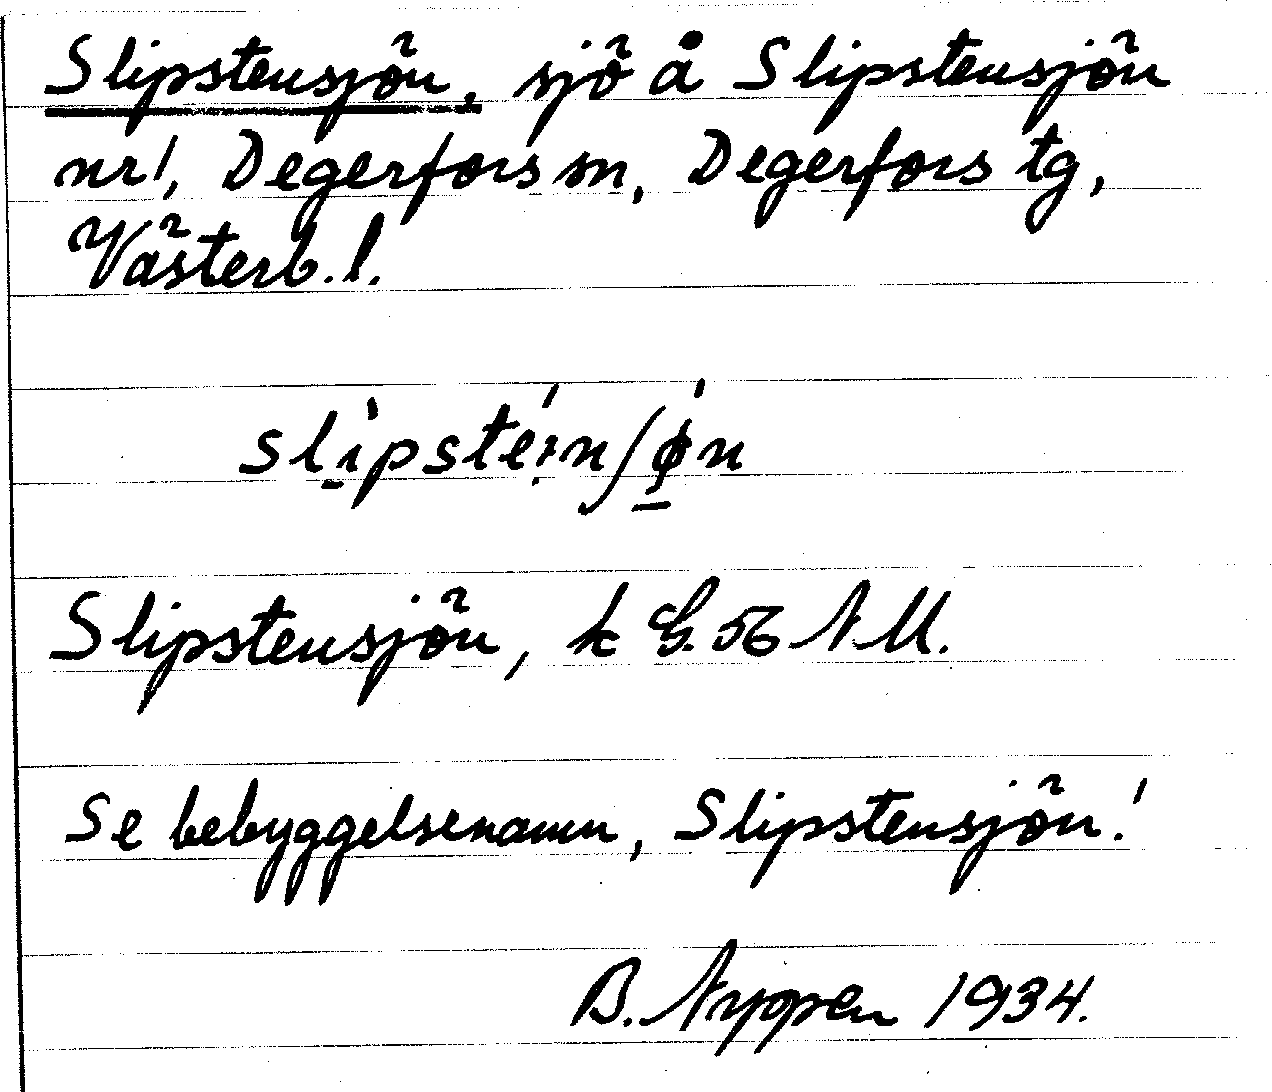 Slipstensjön, sjö å Slipstensjön
nr 1, Degerfors sn, Degerfors tg,
Västerb. l.
Slipstensjön, k G. 56 N M.
Se bebyggelsenamn, Slipstensjön!
B. 1934.